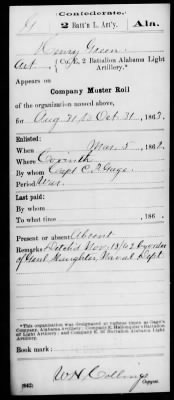 Confederate.
G | 2 Batt'n L. Art'y. | Ala.
Henry Green
Co. E, 2 Battalion Alabama Light Artillery.*
Appears on
Company Muster Roll
of the organization named above,
for Aug 31 to Oct. 31, 1863.
Enlisted:
When Mar. 5, 1862.
Where Corinth
By whom Capt C. P. Gage
Period War.
Last paid:
By whom
To what time , 186 .
Present or absent Absent
Remarks: Detch'd Nov. 13/62 by order
of Genl Slaughter, Naval Dept
*This organization was designated at various times as Gage's
Company, Alabama Artillery; Company E,
Alabama Light Artillery; and Company E, 2d Battalion Alabama Light
Artillery.
Book mark:
(642)
W H Collins
Copyist.